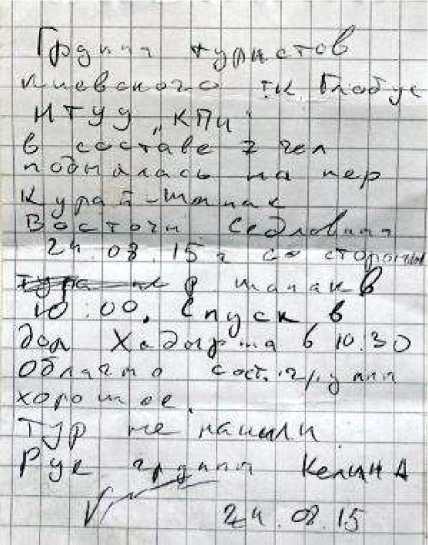 Группа туристов
Киевского т.к. Глобус
НТУУ „КПИ"
в составе 7 чел
поднялась на пер
Кура й-Тапак
Восточн. Седловина
24.08.15 г со стороны
р тапак в
10:00. Спуск в
дол Хадырша в 10.30
Облачно сост. группы
хорошее.
Тур не нашли
Рук группы Келин А
24.08.15